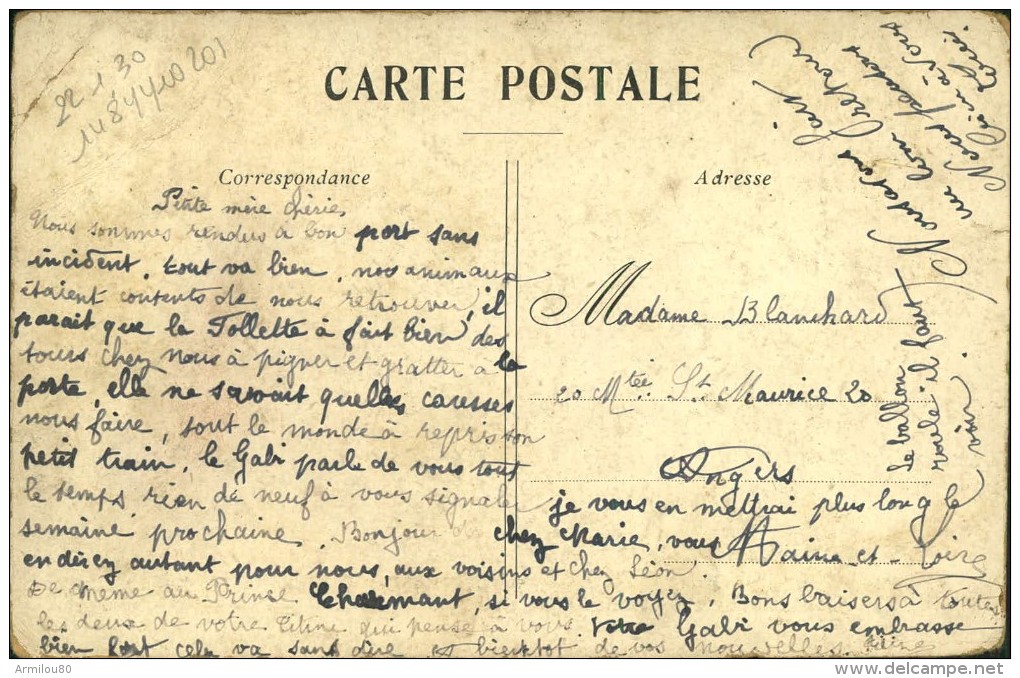 22 1 30
CARTE POSTALE
Correspondance
Adresse
Petite mère chérie,
Nous sommes rendus à bon port sans
incident, tout va bien, nos animaux
étaient contents de nous retrouver, il
parait que la Tollette à fait bien des
tours chez nous à pigner et gratter à la
porte, elle ne savait quelles caresses
nous faire, tout le monde à repris son
petit train, le Gabi parle de vous tout
le temps, rien de neuf à vous signaler
je vous en mettrai plus long la
semaine prochaine. Bonjour chez Marie, vous
en direz autant pour nous, aux voisins et chez Léon.
De même au Prince Charmant, si vous le voyez, Bons baisers à toutes
les deux de votre Titine qui pense à vous. Votre Gabi vous embrasse
bien fort cela va sans dire et bientôt de vos nouvelles. Titine
Madame Blanchard
20 Mtée St Maurice 20
Angers
Maine et Loire
le ballon
roule il faut
Nous avons fait
un bon retour
Nous
Armilou80
delcampe.net